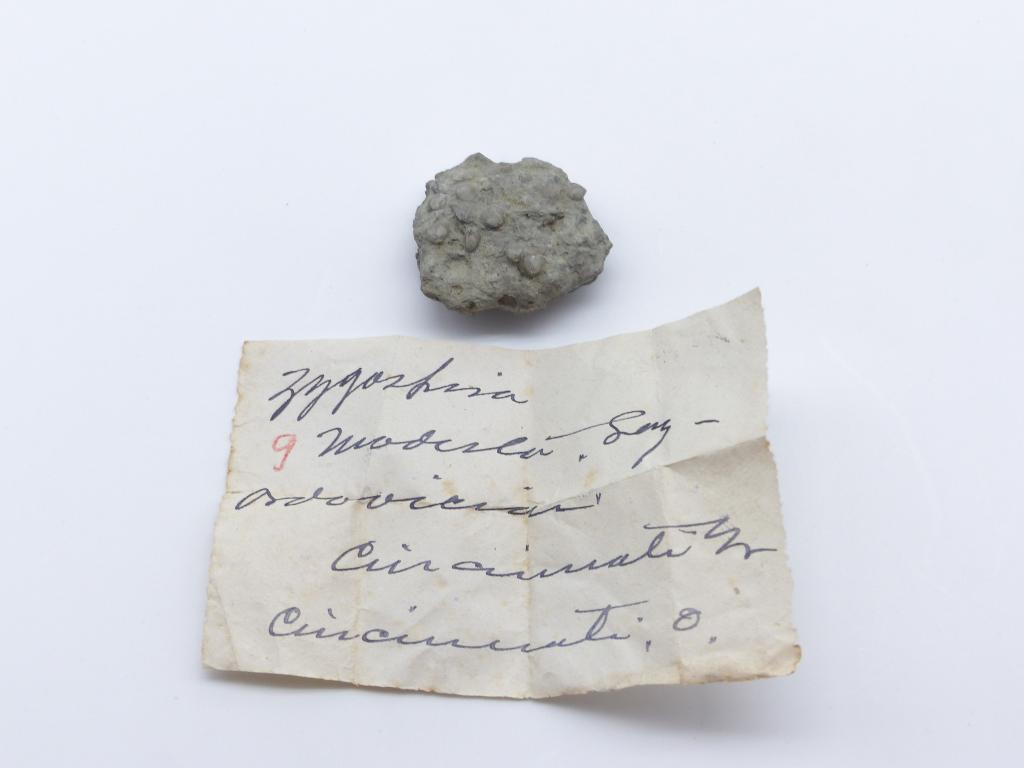 Zygospira
9 modesta. Say -
Ordovician
Cincinnati Gr
Cincinnati, O.